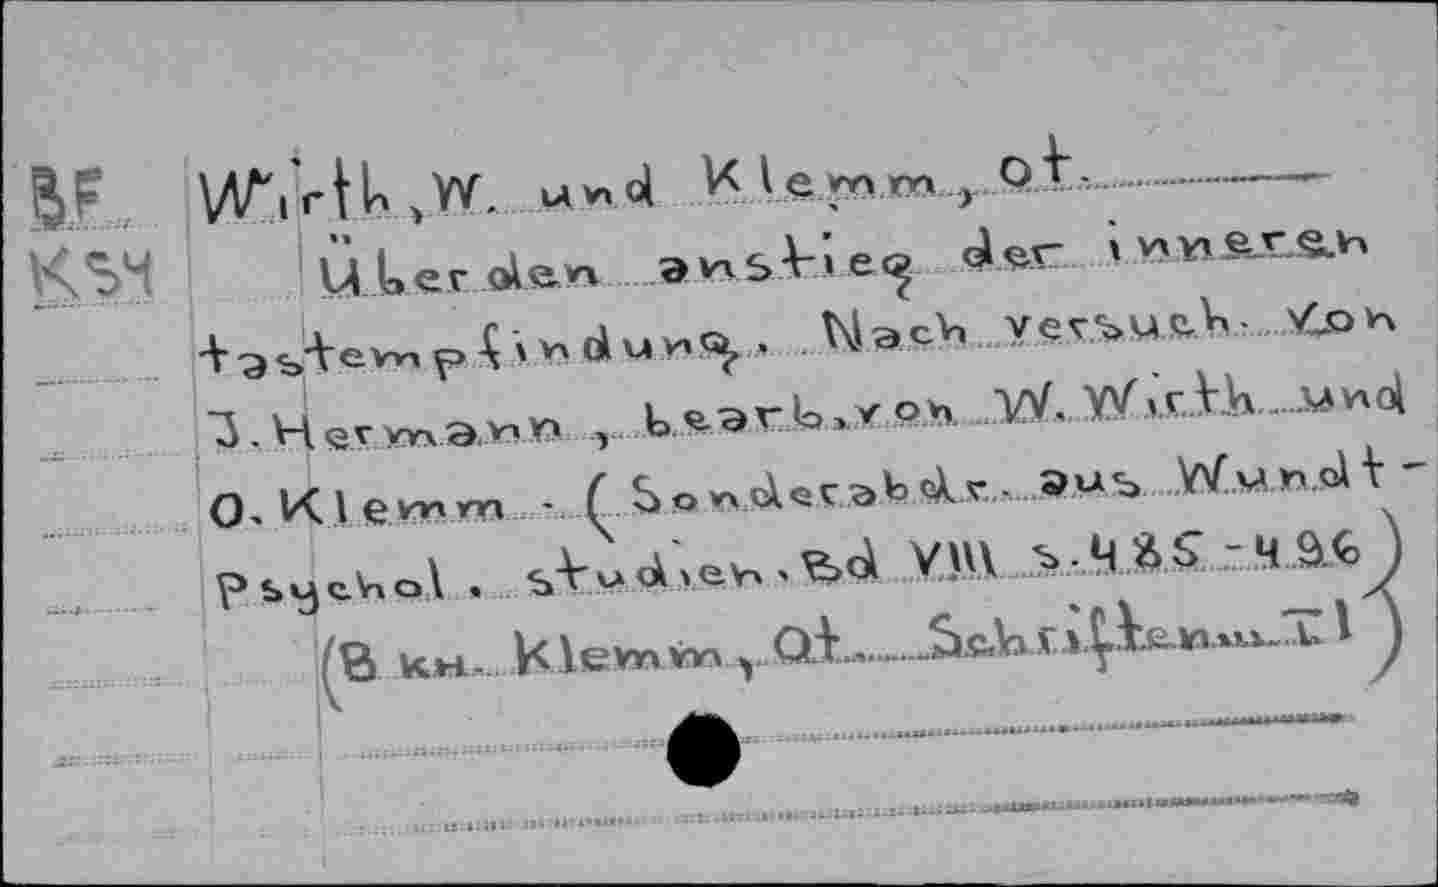 BF Wirth, W. und Klemm, Ot.
K54 Über den anstieg der inneren
tastempfindung. Nach versuch. von
J. Hermann, bearb. von W. Wirth und
O. Klemm - (Sonderabdr. aus Wundt-
Psychol. studien. Bd VIII s. 485-496)
(В кн. Klemm, Ot. Schriften... T 1)